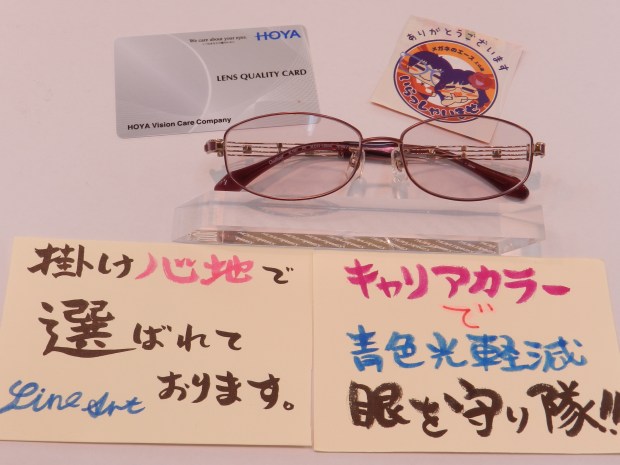 We care about your eyes.
HOYA
LENS QUALITY CARD
HOYA Vision Care Company
ありがとうございます
メガネのエース
いらっしゃいませ
掛け心地で
選ばれて
おります。
Line Art
キャリアカラー
で
青色光軽減
眼を守り隊!!